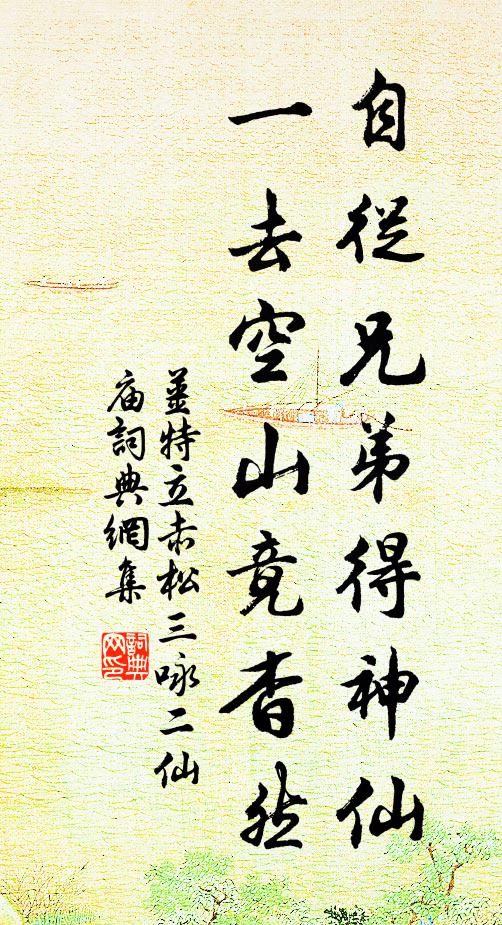 自從兄弟得神仙
一去空山竟杳然
姜特立赤松三咏二仙
庙詞典網集
詞典網印